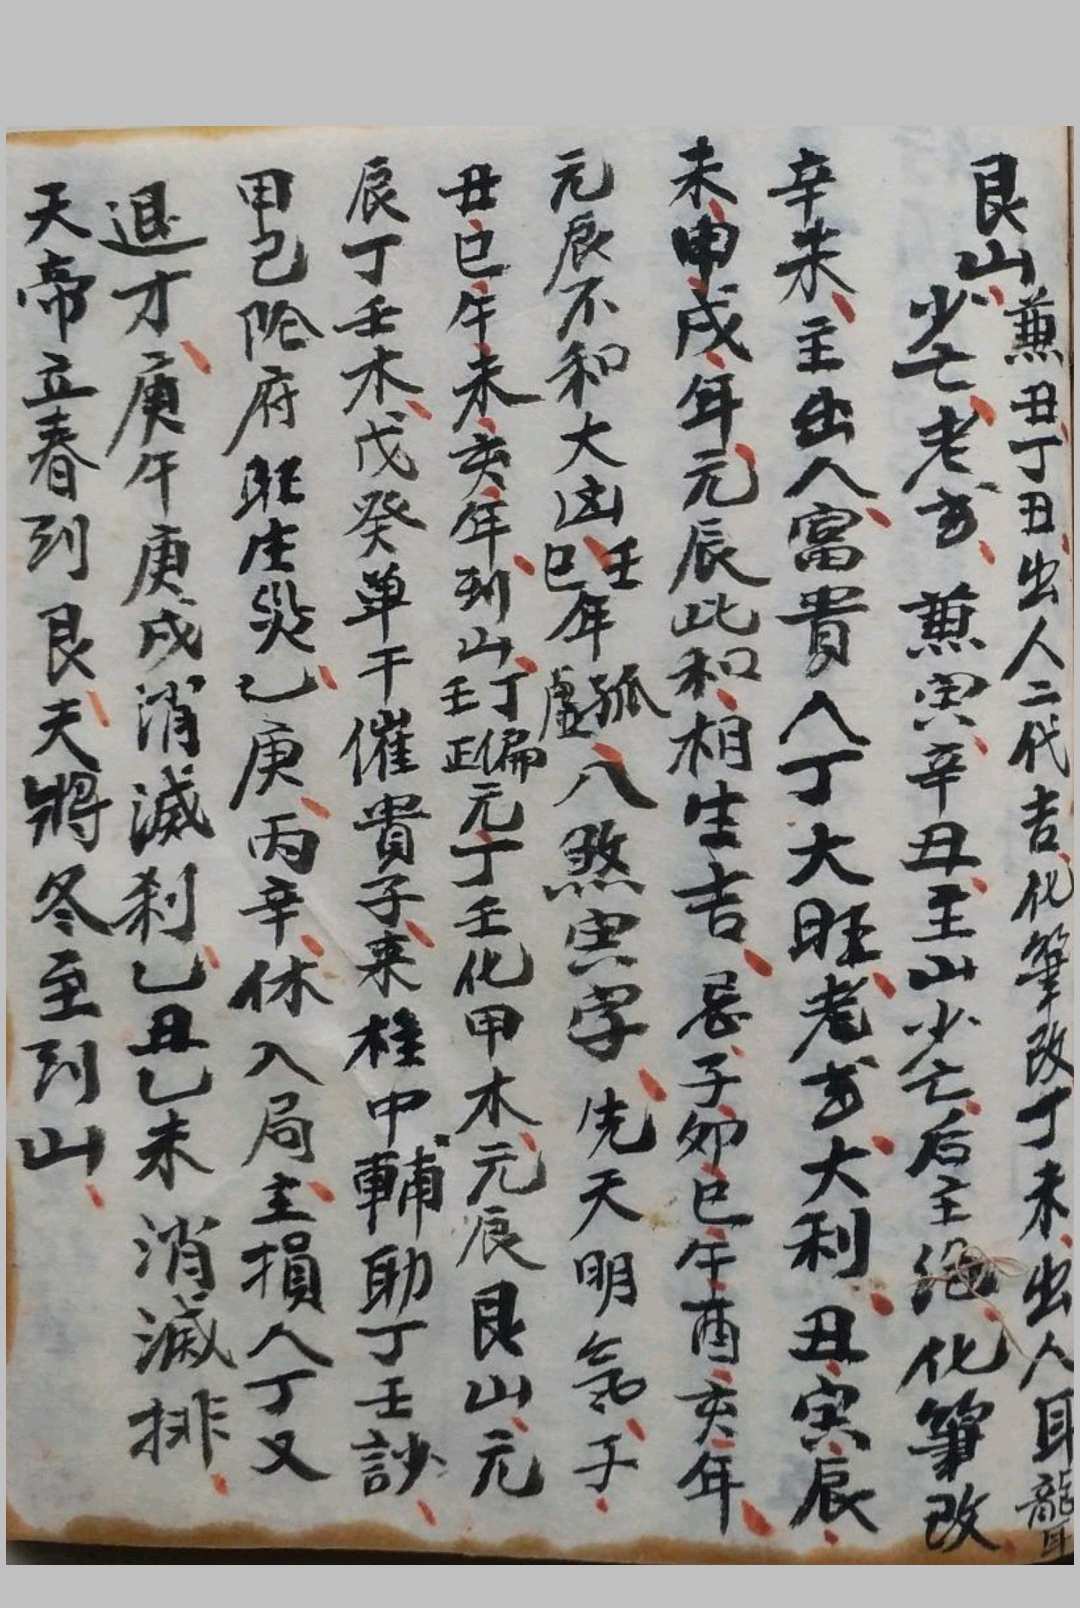 艮山兼丑丁丑出人二代吉化筆改丁未出人耳聾
少亡老方兼寅辛丑至山少亡后主絕化筆改
辛未主出人富貴人丁大旺老方大利丑寅辰
未申戌年元辰此和相生吉忌子卯巳午酉亥年
元辰不和大凶壬巳年孤虛八煞寅字先天明氣子
丑巳午未亥年到山丁壬偏正元丁壬化甲木元辰艮山元
辰丁壬木戊癸单干催貴子来柱中輔助丁壬訬
甲己陰府旺生災乙庚丙辛休入局主損人丁又
退才庚午庚戌消滅刹乙丑乙未消滅排
天帝立春到艮夫將冬至到山